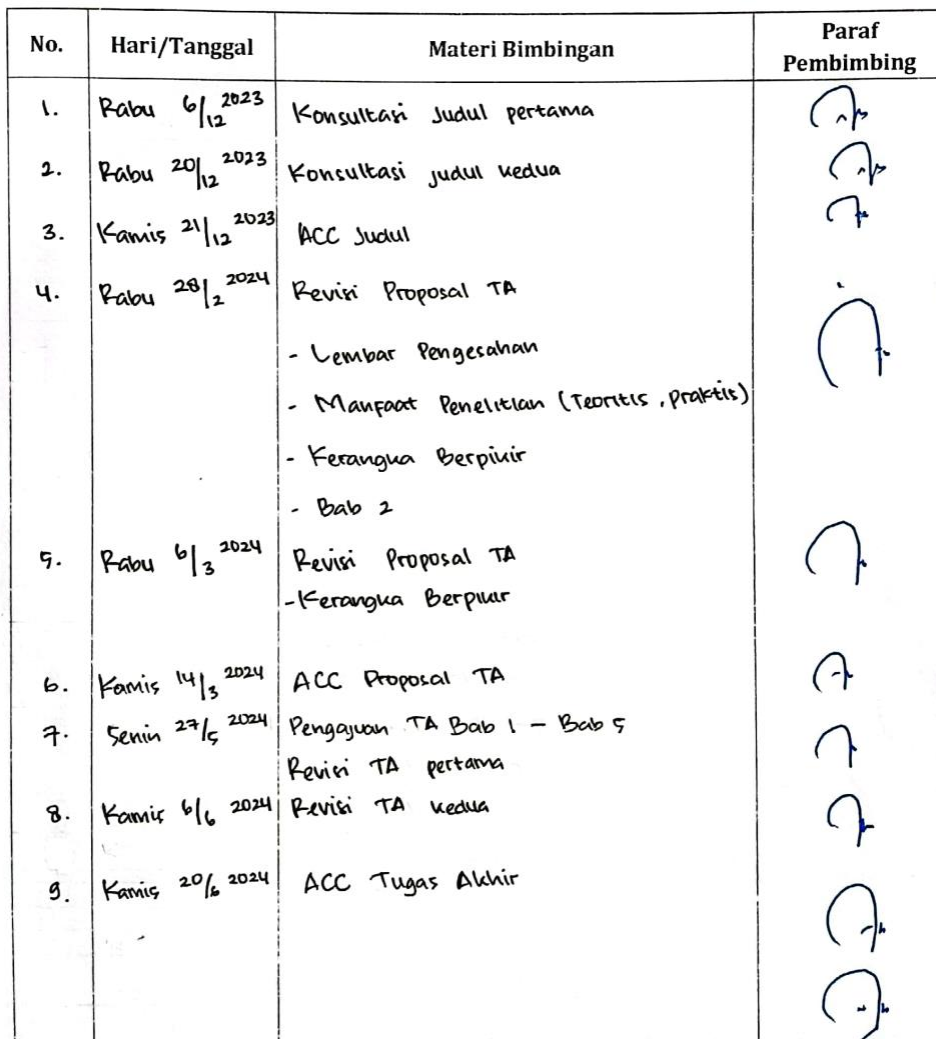 No. Hari/Tanggal Materi Bimbingan Paraf Pembimbing
1. Rabu 6/12 2023 Konsultasi Judul pertama
2. Rabu 20/12 2023 Konsultasi judul kedua
3. Kamis 21/12 2023 ACC Judul
4. Rabu 28/2 2024 Revisi Proposal TA
- Lembar Pengesahan
- Manfaat Penelitian (Teoritis, praktis)
- Kerangka Berpikir
- Bab 2
5. Rabu 6/3 2024 Revisi Proposal TA
- Kerangka Berpikir
6. Kamis 14/3 2024 ACC Proposal TA
7. Senin 27/5 2024 Pengajuan TA Bab 1 - Bab 5
Revisi TA pertama
8. Kamis 6/6 2024 Revisi TA kedua
9. Kamis 20/6 2024 ACC Tugas Akhir